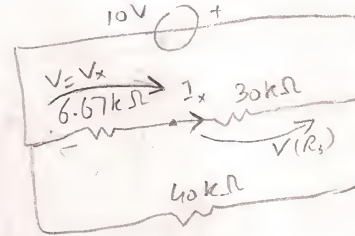 10V +
V = Vx
6.67kΩ Ix 30kΩ
V(R3)
40kΩ